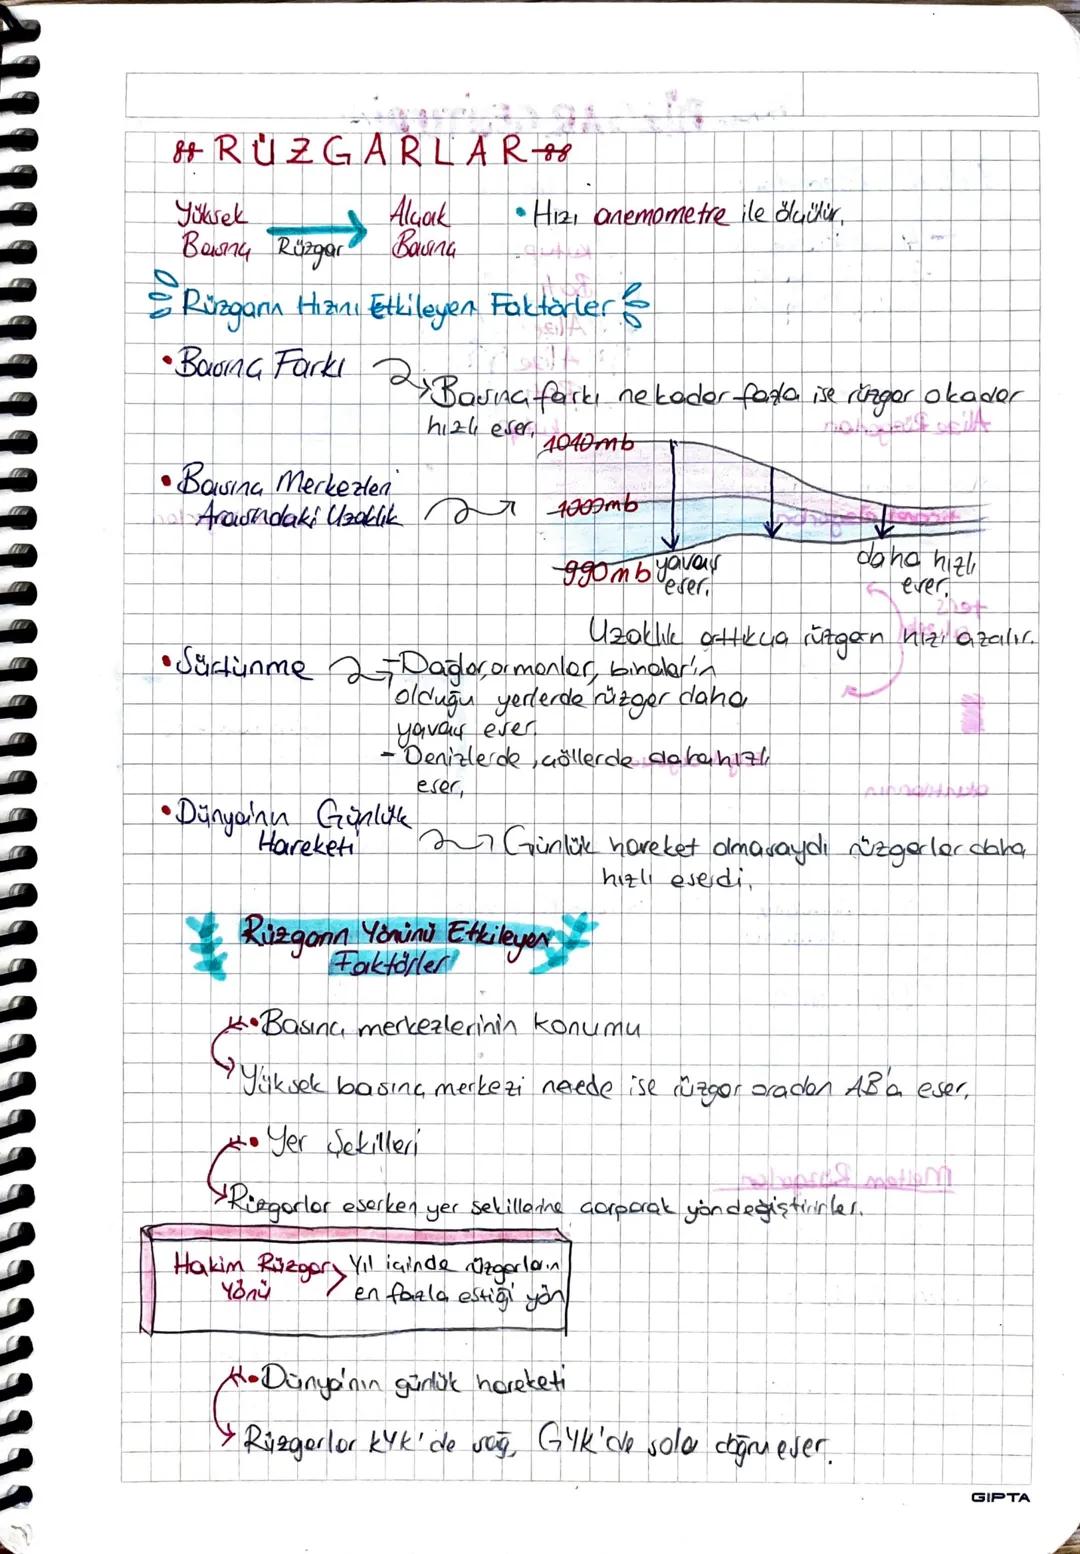 RÜZGARLAR
Yüksek Basınç
Rüzgar
Alçak Basınç
• Hızı anemometre ile ölçülür.
Rüzgarın Hızını Etkileyen Faktörler
• Basınç Farkı
Basınç farkı ne kadar fazla ise rüzgar o kadar
hızlı eser.
1040mb
• Basınç Merkezleri
Arasındaki Uzaklık
1000mb
990mb
yavaş
eser.
daha hızlı
eser.
Uzaklık arttıkça rüzgarın hızı azalır.
• Sürtünme
- Dağlar, ormanlar, binalar'ın
olduğu yerlerde rüzgar daha
yavaş eser.
- Denizlerde, göllerde daha hızlı
eser.
• Dünya'nın Günlük
Hareketi
Günlük hareket olmasaydı rüzgarlar daha
hızlı eserdi.
Rüzgarın Yönünü Etkileyen
Faktörler
• Basınç merkezlerinin konumu
Yüksek basınç merkezi nerede ise rüzgar oradan AB'a eser.
• Yer Şekilleri
Rüzgarlar eserken yer şekillerine çarparak yön değiştirirler.
Hakim Rüzgar
Yönü
Yıl içinde rüzgarların
en fazla estiği yön
• Dünya'nın günlük hareketi
Rüzgarlar KYK'de sağ, GYK'de sola doğru eser.
GIPTA